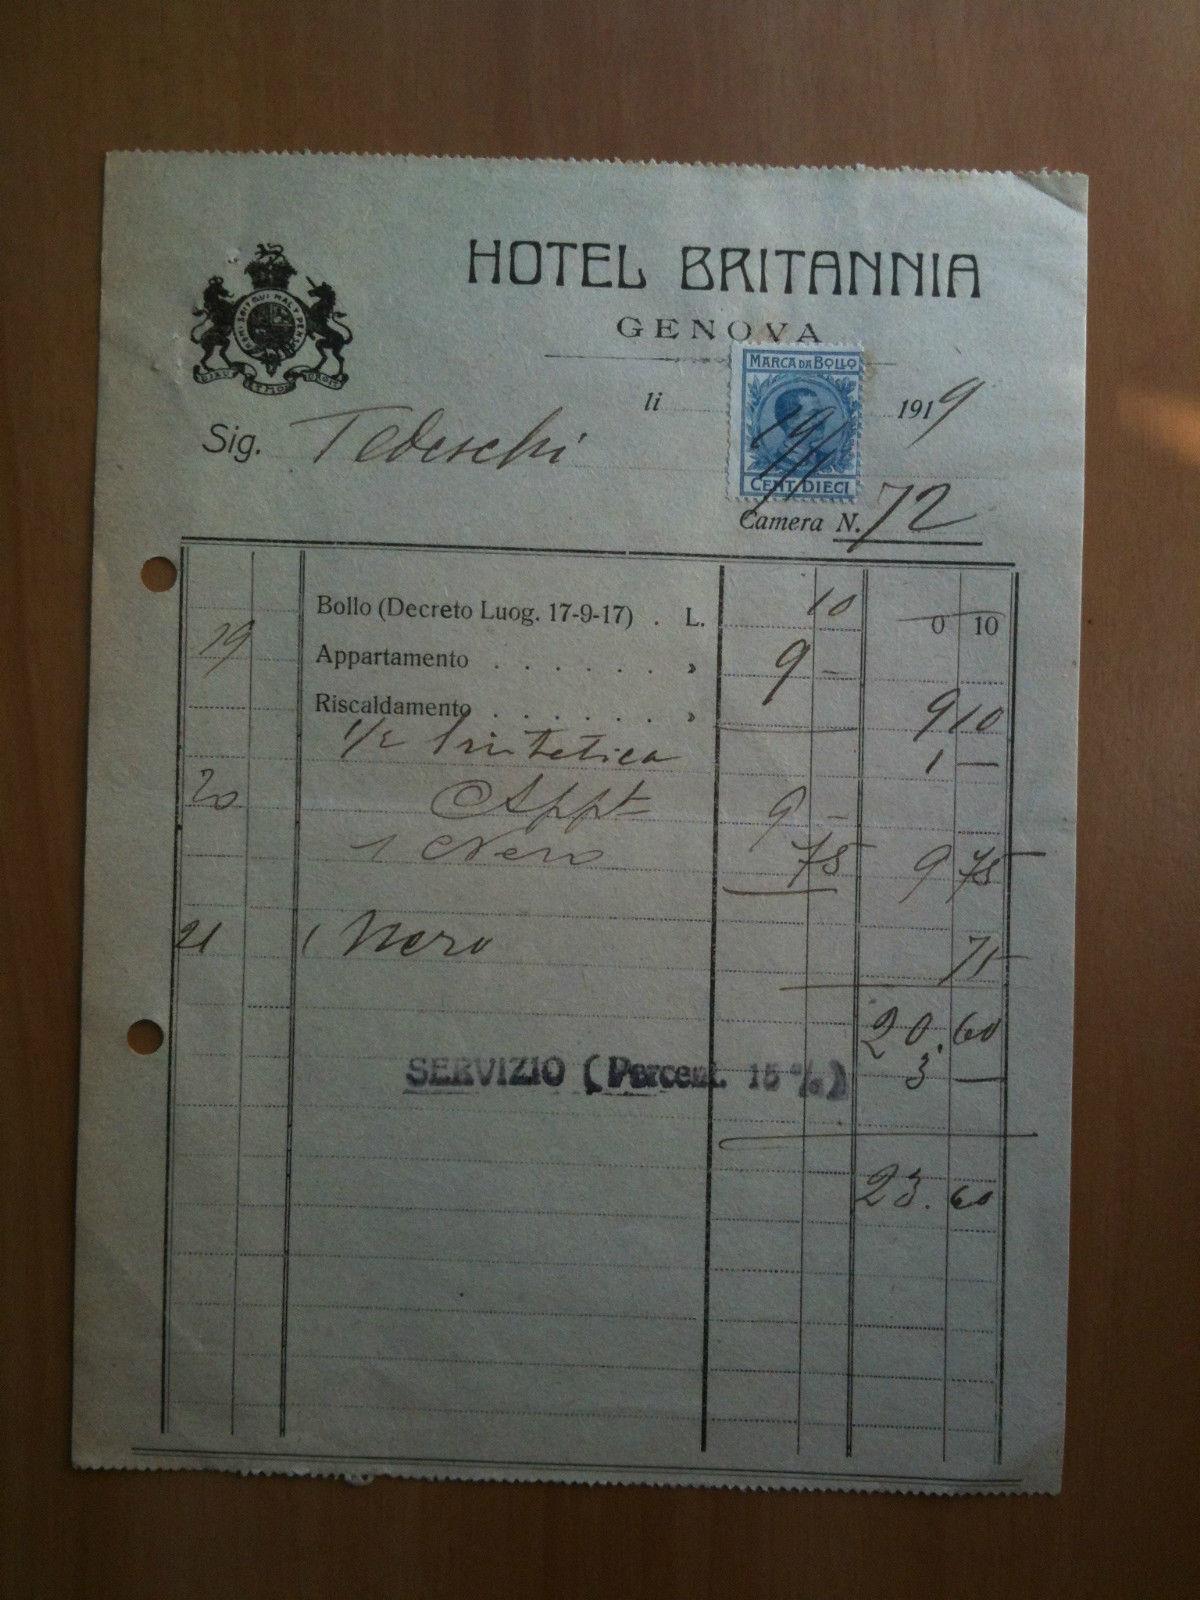 HOTEL BRITANNIA
GENOVA
MARCA DA BOLLO
li 1919
CENT. DIECI
Sig. Tedeschi
Camera N. 72
Bollo (Decreto Luog. 17-9-17) . L. 10 0 10
19 Appartamento . . . . . . » 9 -
Riscaldamento . . . . . . » 9 10
1/2 1 —
20 Appt 9 -
1 Nero 75 9 75
21 1 Nero 75
20.60
SERVIZIO (Percent. 15 %) 3 —
23.60